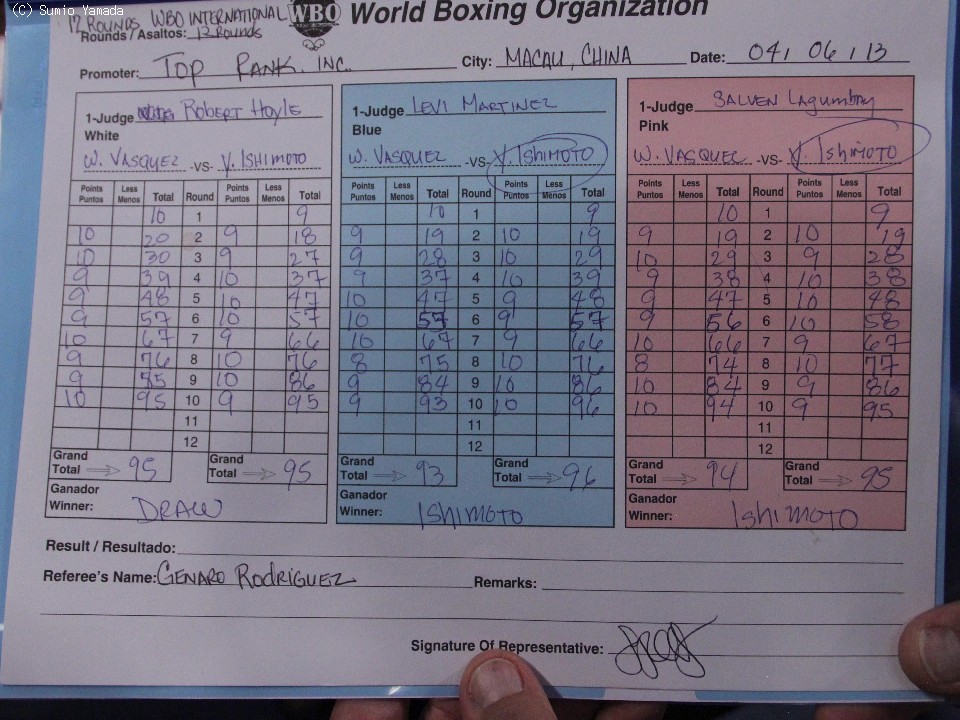 (C) Sumio Yamada
12 ROUNDS WBO INTERNATIONAL
WBO World Boxing Organization
Rounds / Asaltos: 12 ROUNDS
Promoter: TOP RANK, INC. City: MACAU, CHINA Date: 04 / 06 / 13
1-Judge ROBERT HOYLE
White
W. VASQUEZ -VS- Y. ISHIMOTO
Points Puntos Less Menos Total Round Points Puntos Less Menos Total
10 1 9
10 20 2 9 18
10 30 3 9 27
9 39 4 10 37
9 48 5 10 47
9 57 6 10 57
10 67 7 9 66
9 76 8 10 76
9 85 9 10 86
10 95 10 9 95
11
12
Grand Total 95 Grand Total 95
Ganador
Winner: DRAW
1-Judge LEVI MARTINEZ
Blue
W. VASQUEZ -VS- Y. ISHIMOTO
Points Puntos Less Menos Total Round Points Puntos Less Menos Total
10 1 9
9 19 2 10 19
9 28 3 10 29
9 37 4 10 39
10 47 5 9 48
10 57 6 9 57
10 67 7 9 66
8 75 8 10 76
9 84 9 10 86
9 93 10 10 96
11
12
Grand Total 93 Grand Total 96
Ganador
Winner: ISHIMOTO
1-Judge SALVEN Lagumbay
Pink
W. VASQUEZ -VS- Y. ISHIMOTO
Points Puntos Less Menos Total Round Points Puntos Less Menos Total
10 1 9
9 19 2 10 19
10 29 3 9 28
9 38 4 10 38
9 47 5 10 48
9 56 6 10 58
10 66 7 9 67
8 74 8 10 77
10 84 9 9 86
10 94 10 9 95
11
12
Grand Total 94 Grand Total 95
Ganador
Winner: ISHIMOTO
Result / Resultado:
Referee's Name: GENARO RODRIGUEZ Remarks:
Signature Of Representative: